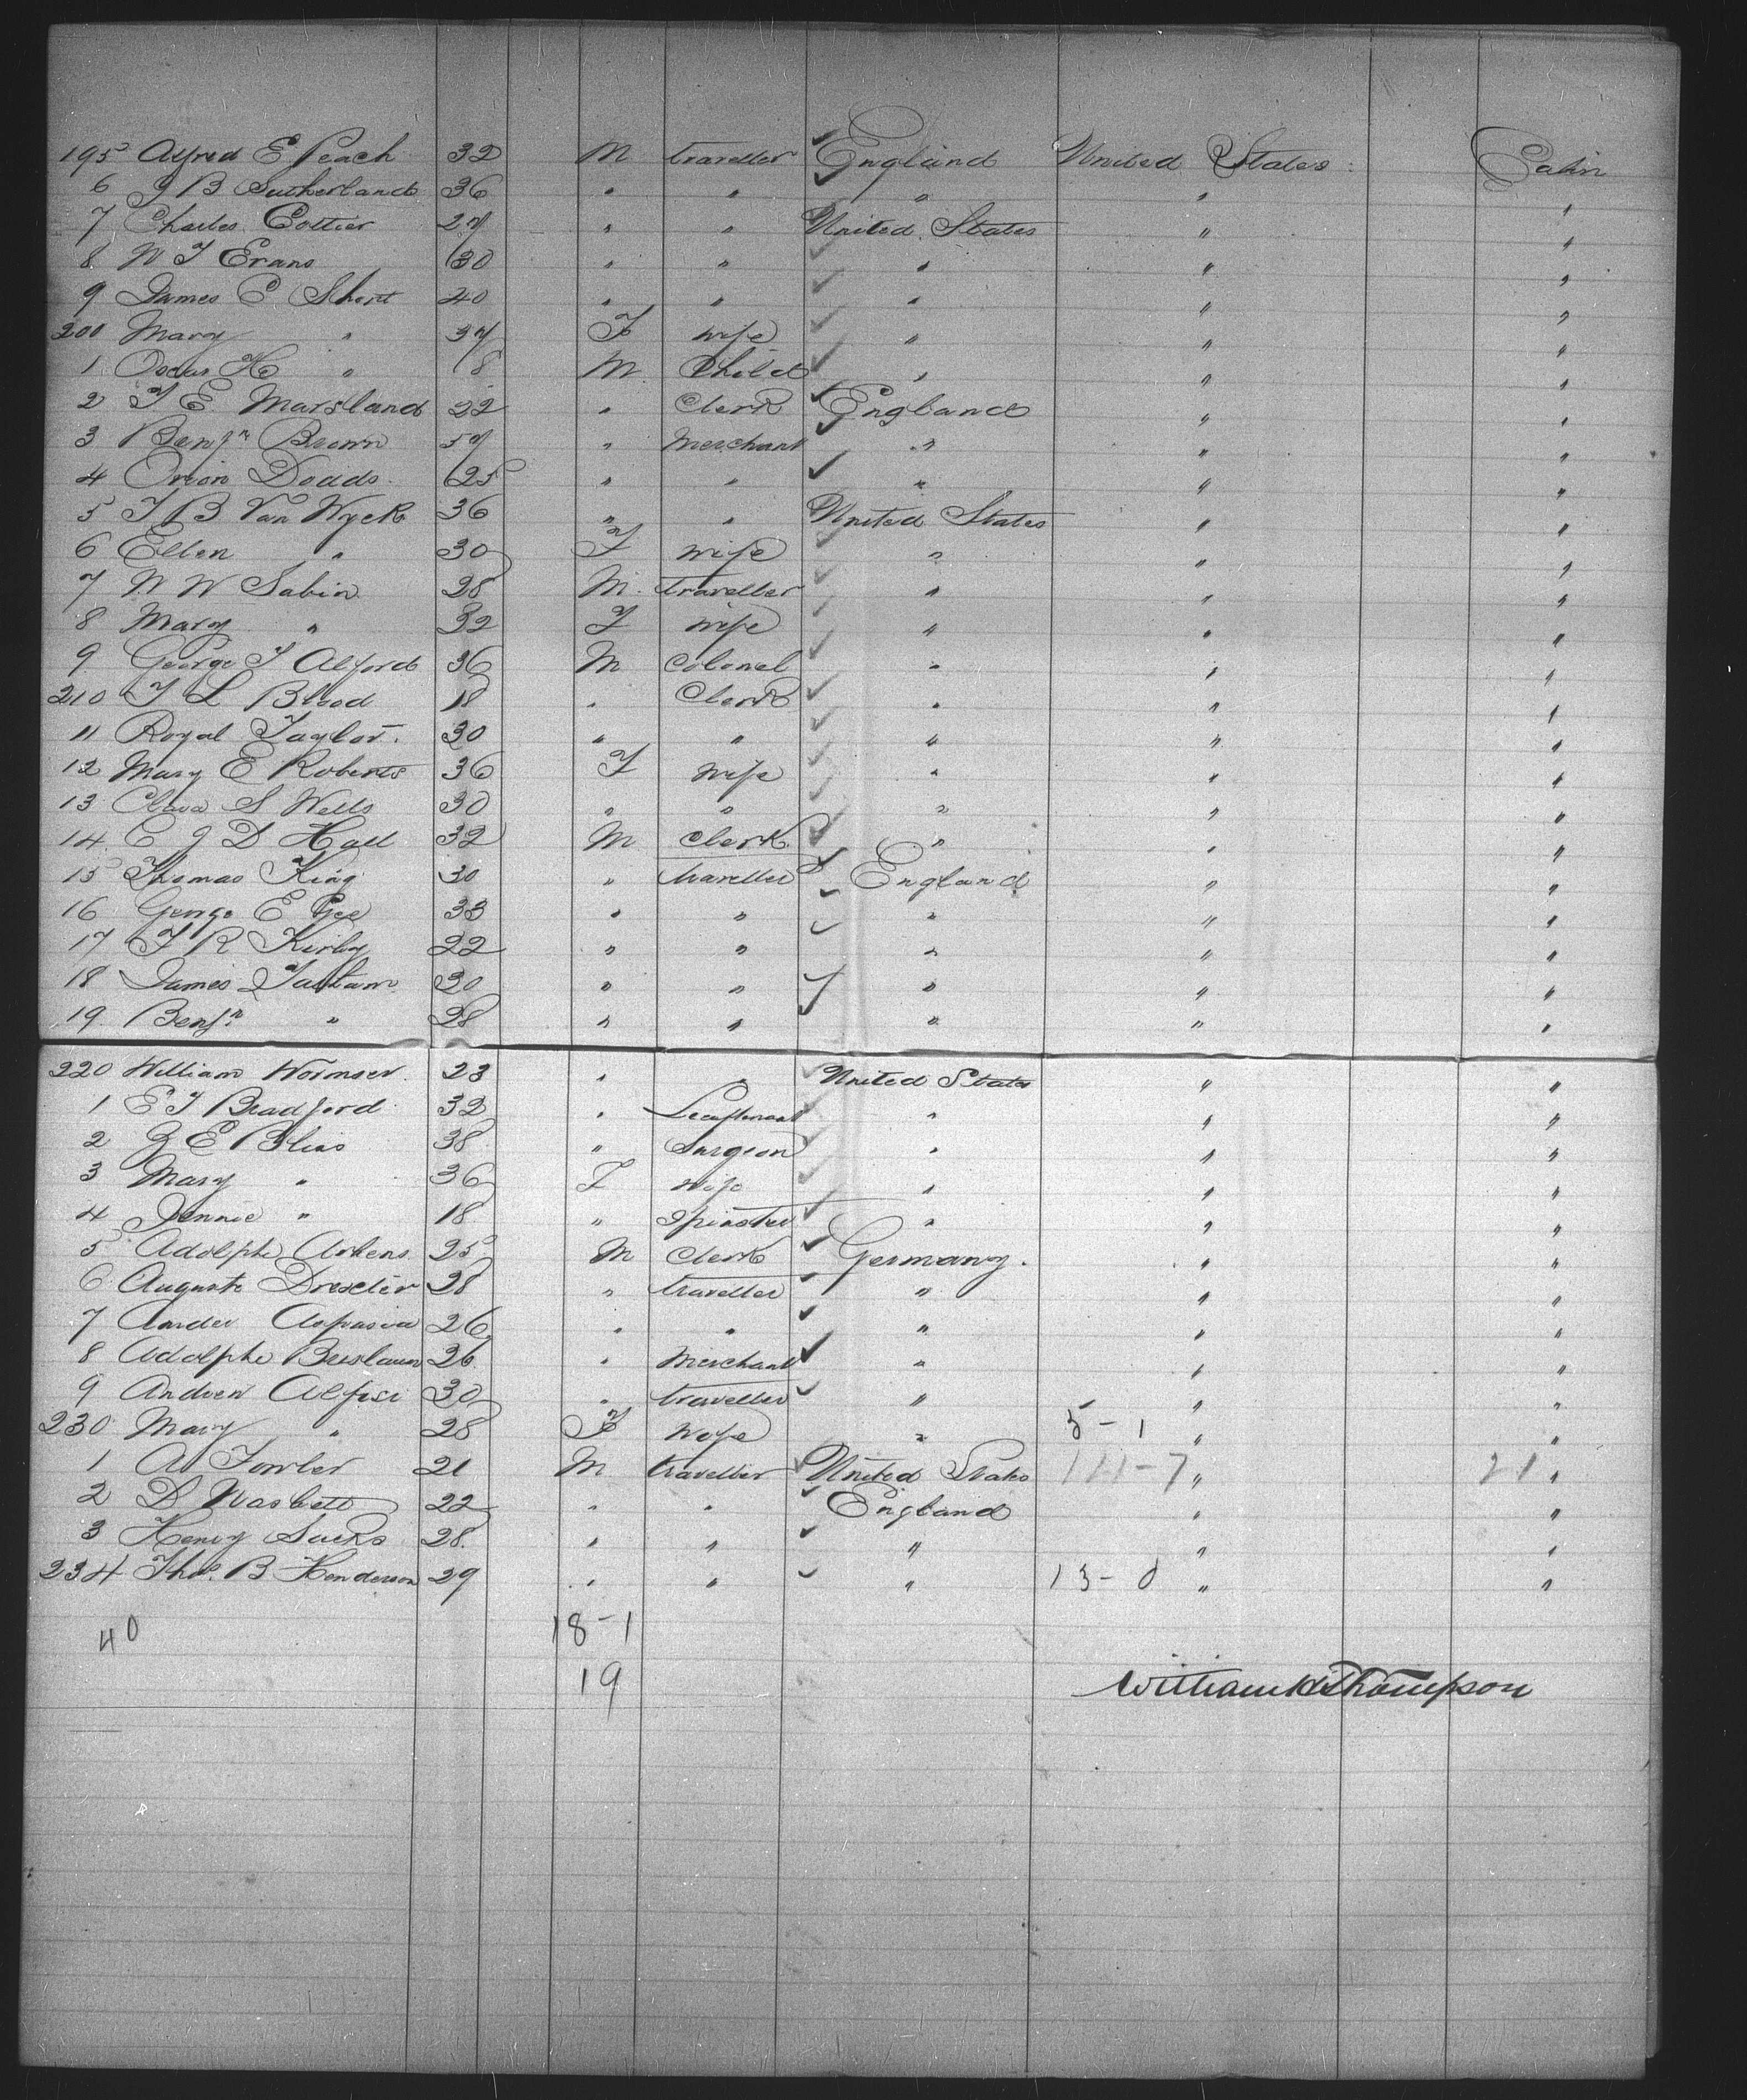 195 Alfred E Peach 32 M traveller England United States Cabin
6 J B Sutherland 36 " " " " "
7 Charles Cottier 27 " " United States " "
8 W T Evans 30 " " " " "
9 James C Short 40 " " " " "
200 Mary " 37 F wife " " "
1 Oscar H " 8 M Child " " "
2 T E Marsland 22 " Clerk England " "
3 Benjn Brown 57 " Merchant " " "
4 Orion Dodds 25 " " " " "
5 T B Van Wyck 36 " " United States " "
6 Ellen " 30 F wife " " "
7 W W Sabin 28 M traveller " " "
8 Mary " 32 F wife " " "
9 George T Alford 36 M Colonel " " "
210 T L Blood 18 " Clerk " " "
11 Royal Taylor 30 " " " " "
12 Mary E Roberts 36 F wife " " "
13 Clara S Wells 30 " " " " "
14 C J D Hall 32 M Clerk " " "
15 Thomas King 30 " traveller England " "
16 George E Gee 33 " " " " "
17 T R Kirby 22 " " " " "
18 James Tattam 30 " " " " "
19 Benjn " 28 " " " " "
220 William Wormser 23 " " United States " "
1 E T Bradford 32 " Lieutenant " " "
2 Z E Bliss 38 " Surgeon " " "
3 Mary " 36 F wife " " "
4 Jennie " 18 " Spinster " " "
5 Adolphe Arkens 25 M Clerk Germany " "
6 Auguste Drexler 28 " traveller " " "
7 Aspasia 26 " " " " "
8 Adolphe Breslaun 26 " Merchant " " "
9 Andrew Alfesi 30 " traveller " " "
230 Mary " 28 F Wife " 5-1 " "
1 A Fowler 21 M traveller United States 111-7 " 21 "
2 D Nasbett 22 " " England " "
3 Henry Sucks 28 " " " " "
234 Thos. B Henderson 29 " " " 13-0 " "
40 18-1
19
William H Thompson